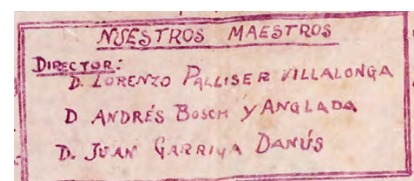 NUESTROS MAESTROS
DIRECTOR:
D. LORENZO PALLISER VILLALONGA
D ANDRÉS BOSCH Y ANGLADA
D. JUAN GARRIGA DANÚS